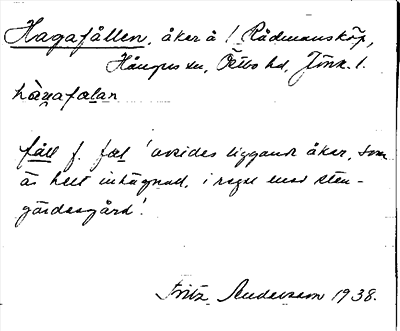 Hagafållen, åker å ! Rådmansköp,
Hångers sn, Östbo hd, Jönk. l.
hàgafalan
fåll f. fal 'avsides liggande åker, som
är helt inhägnad, i regel med sten-
gärdesgård'.
Fritz Andersson 1938.